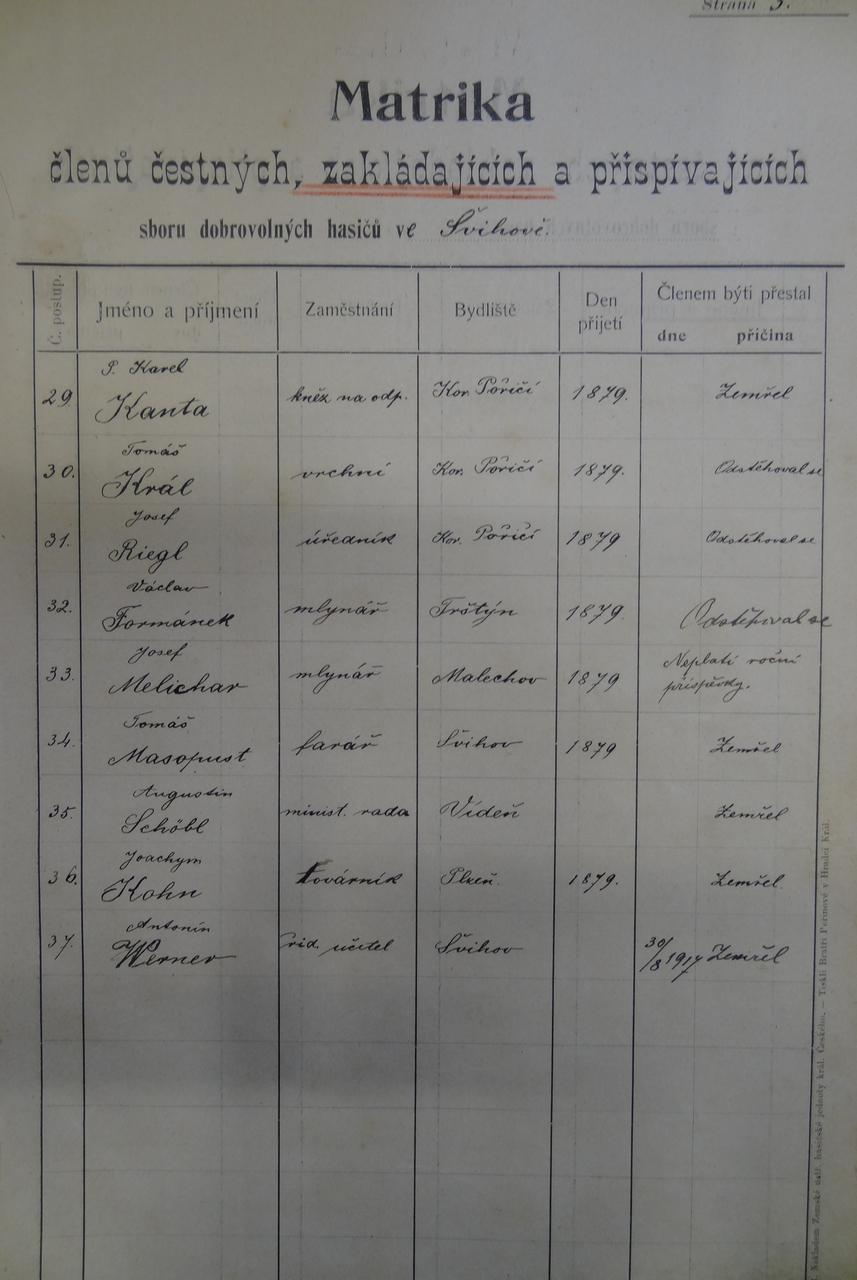 Strana 3.
Matrika
členů čestných, zakládajících a přispívajících
sboru dobrovolných hasičů ve Švihově.
Č. postup. Jméno a příjmení Zaměstnání Bydliště Den přijetí Členem býti přestal
dne příčina
29. P. Karel Kanta kněz na odp. Kor. Poříčí 1879. Zemřel
30. Tomáš Král vrchní Kor. Poříčí 1879. Odstěhoval se
31. Josef Riegl úředník Kor. Poříčí 1879 Odstěhoval se
32. Václav Formánek mlynář Trštýn 1879. Odstěhoval se
33. Josef Melichar mlynář Malechov 1879 Neplatí roční příspěvky.
34. Tomáš Masopust farář Švihov 1879 Zemřel
35. Augustin Schöbl minist. rada Vídeň Zemřel
36. Joachym Kohn továrník Plzeň. 1879. Zemřel
37. Antonín Werner říd. učitel Švihov 30/8 1917 Zemřel
Nákladem Zemské ústř. hasičské jednoty král. Českého. — Tiskli Bratři Peřinové v Hradci Král.